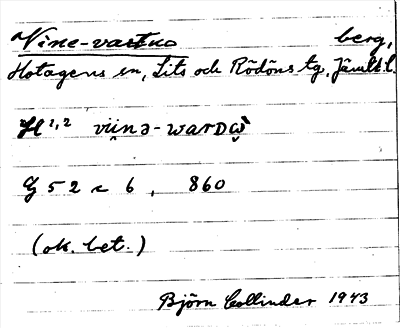 Vine-vartno berg,
Hotagens sn, Lits och Rödöns tg, Jämtl. l.
H 1,2 vi̮i̮nə-warDω̮̆
G 52 c 6, 860
(ok. bet.)
Björn Collinder 1943